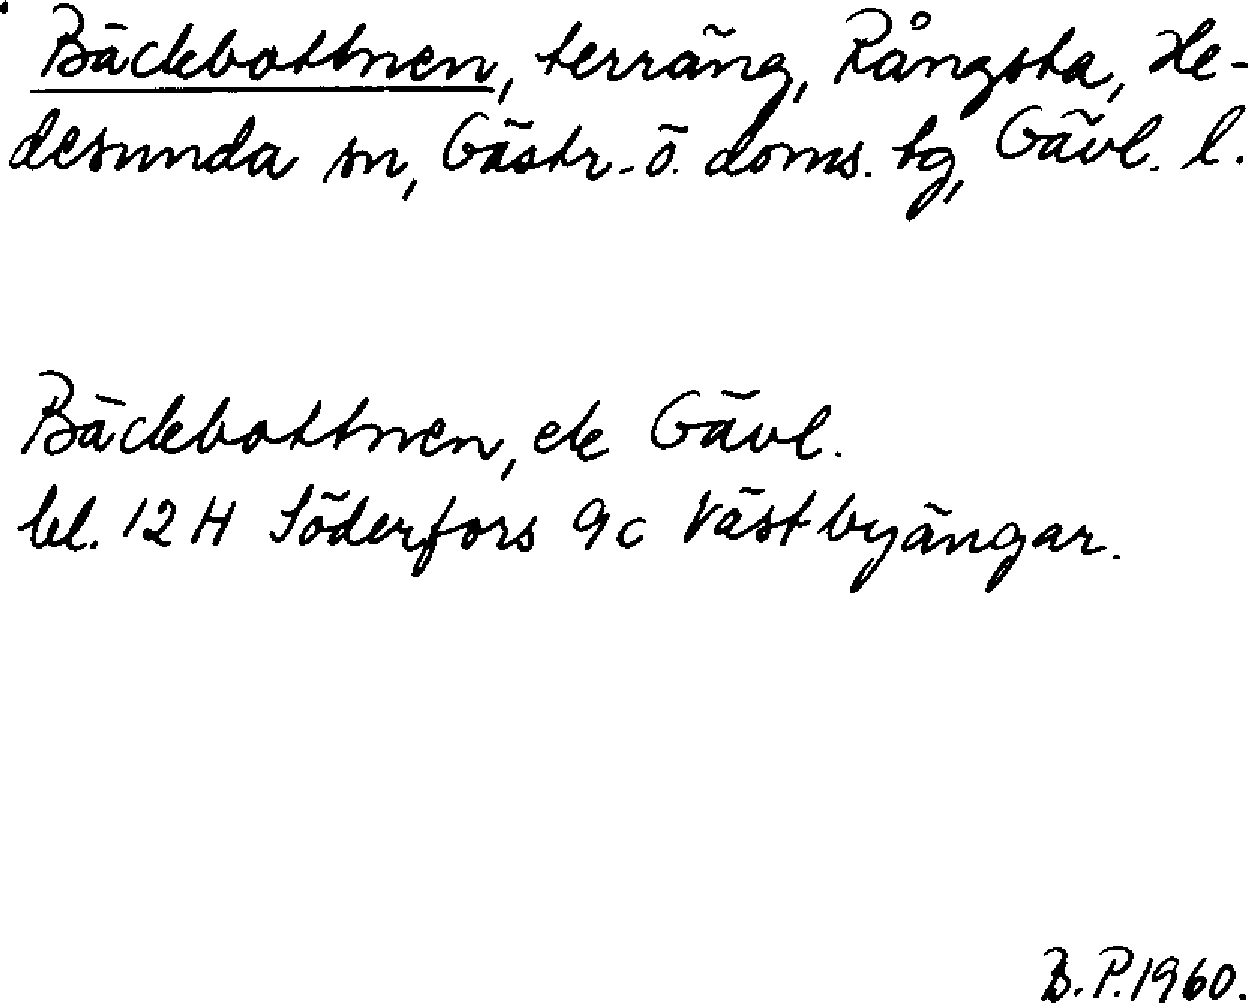 Bäckbottnen, terräng, Rångsta, He-
desunda sn, Gästr.-ö. doms. tg, Gävl. l.
Bäckbottnen, ek Gävl.
bl. 12 H Söderfors 9 c Västbyängar.
B. P. 1960.